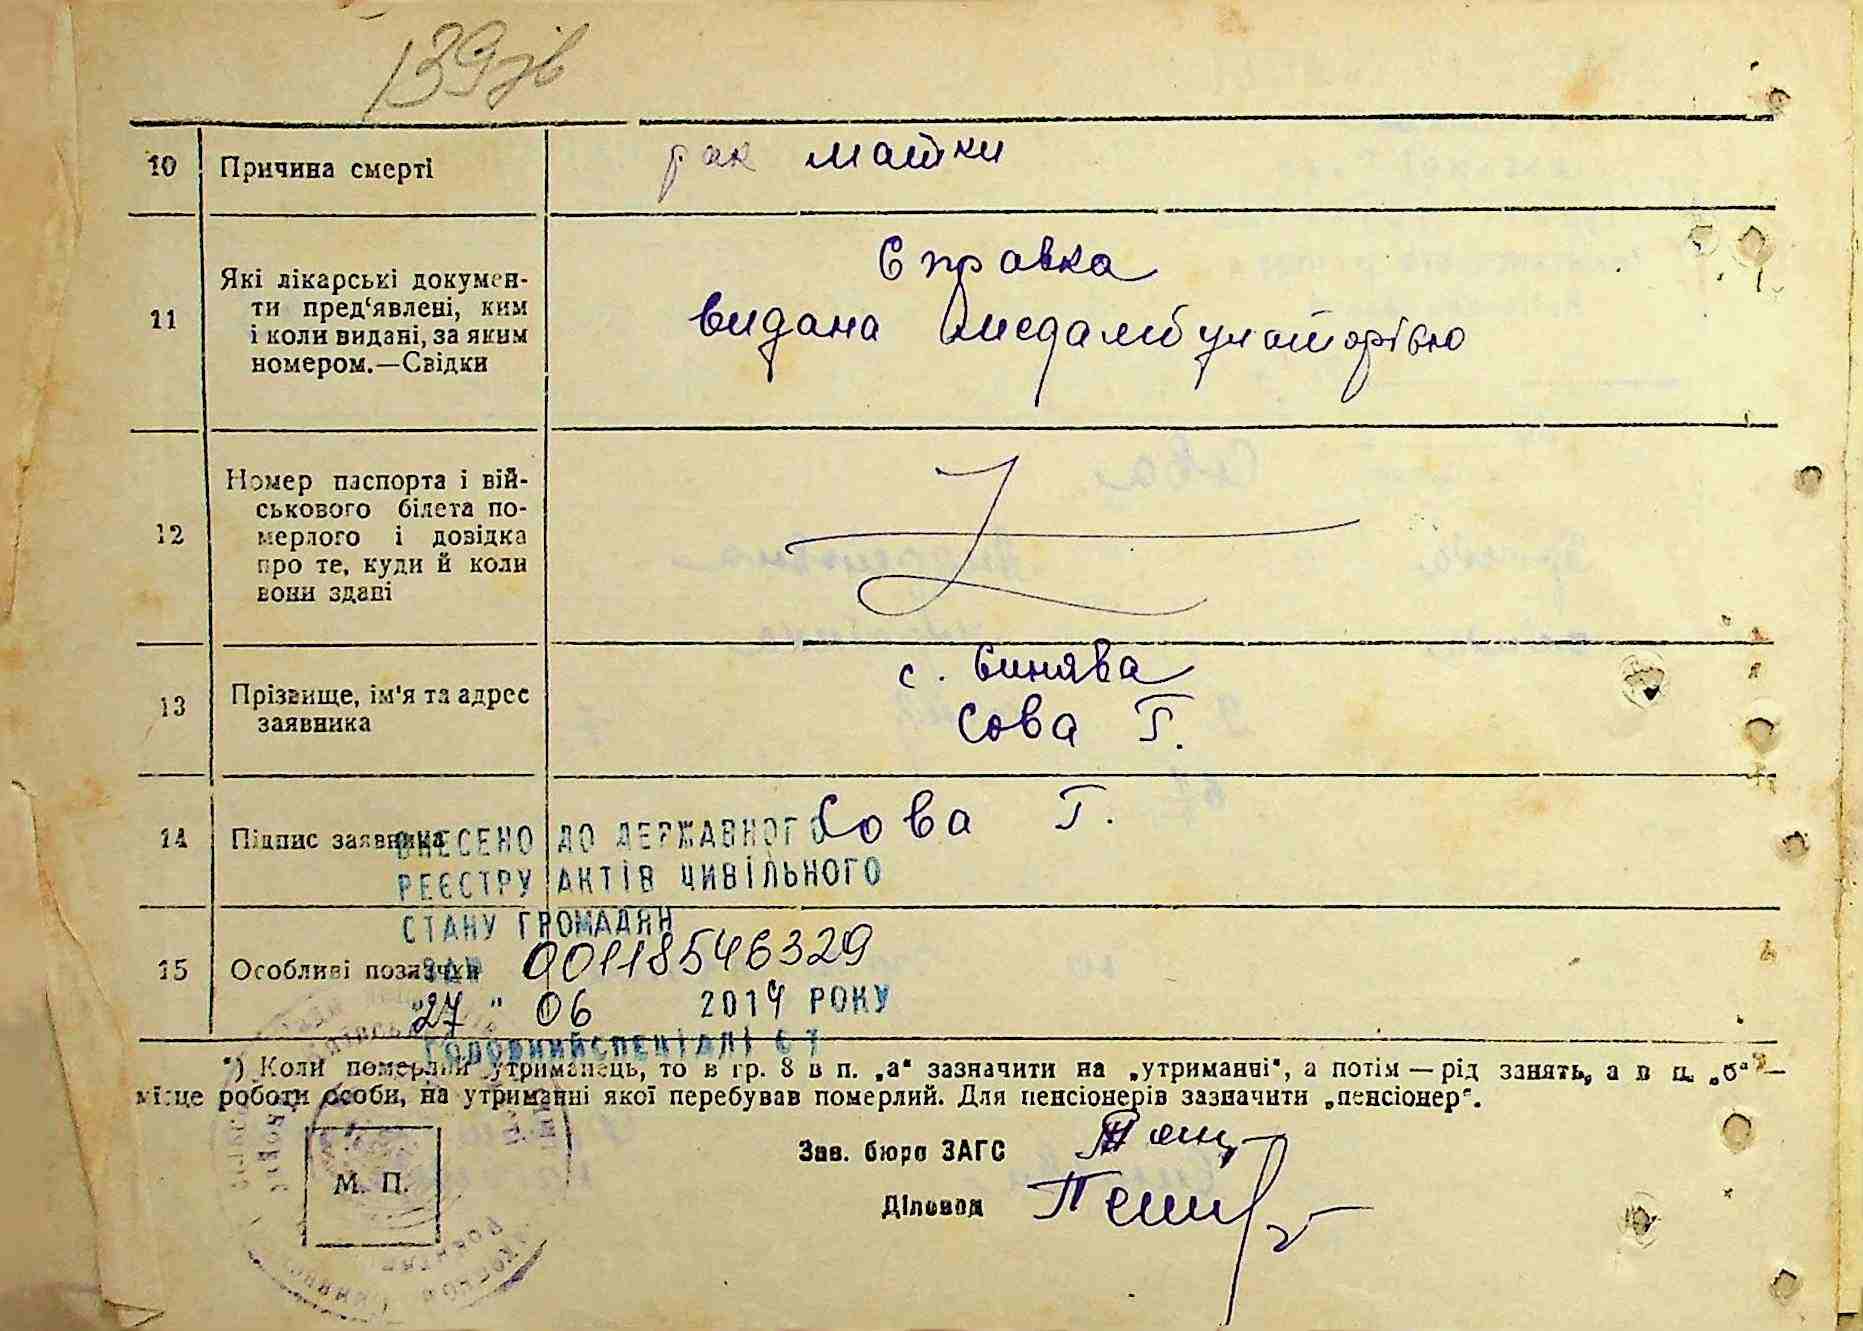 139зв
10 Причина смерті рак матки
11 Які лікарські докумен-
ти пред'явлені, ким
і коли видані, за яким
номером.—Свідки
Справка
видана Медамбулаторією
12 Номер паспорта і вій-
ськового білета по-
мерлого і довідка
про те, куди й коли
вони здані
13 Прізвище, ім'я та адрес
заявника
с. Синява
Сова Г.
14 Підпис заявника Сова Г.
ВНЕСЕНО ДО ДЕРЖАВНОГО
РЕЄСТРУ АКТІВ ЦИВІЛЬНОГО
СТАНУ ГРОМАДЯН
15 Особливі позначки
ЗА № 00118546329
"27" 06 2014 РОКУ
ГОЛОВНИЙ СПЕЦІАЛІСТ
*) Коли померлий утриманець, то в гр. 8 в п. „а“ зазначити на „утриманні“, а потім — рід занять, а в п. „б“ —
місце роботи особи, на утриманні якої перебував померлий. Для пенсіонерів зазначити „пенсіонер“.
Зав. бюро ЗАГС
М. П.
Діловод